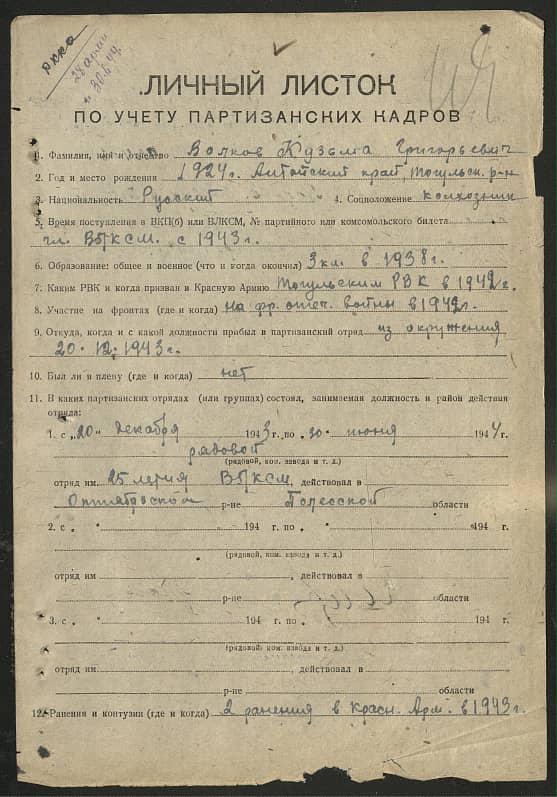 РККА
28 армии
30.6.44
ЛИЧНЫЙ ЛИСТОК
ПО УЧЕТУ ПАРТИЗАНСКИХ КАДРОВ
1. Фамилия, имя и отчество Волков Кузьма Григорьевич
2. Год и место рождения 1924г. Алтайский край, Тогульск. р-н
3. Национальность Русский 4. Соцположение колхозник
5. Время поступления в ВКП(б) или ВЛКСМ, № партийного или комсомольского билета
чл. ВЛКСМ. с 1943г.
6. Образование: общее и военное (что и когда окончил) 3кл. в 1938г.
7. Каким РВК и когда призван в Красную Армию Тогульским РВК в 1942г.
8. Участие на фронтах (где и когда) на фр. отеч. войны в 1942г.
9. Откуда, когда и с какой должности прибыл в партизанский отряд из окружения
20.12.1943г.
10. Был ли в плену (где и когда) нет
11. В каких партизанских отрядах (или группах) состоял, занимаемая должность и район действия
отряда:
1. с „20“ декабря 1943г. по „30“ июня 1944г.
рядовой
(рядовой, ком. взвода и т. д.)
отряд им. 25 летия ВЛКСМ, действовал в
Октябрьском р-не Полесской области
2. с „ “ 194 г. по „ “ 194 г.
(рядовой, ком. взвода и т. д.)
отряд им , действовал в
р-не области
3. с „ “ 194 г. по „ “ 194 г.
(рядовой, ком. взвода и т. д.)
отряд им. , действовал в
р-не области
12. Ранения и контузии (где и когда) 2 ранения в Красн. Арм. в 1943г.